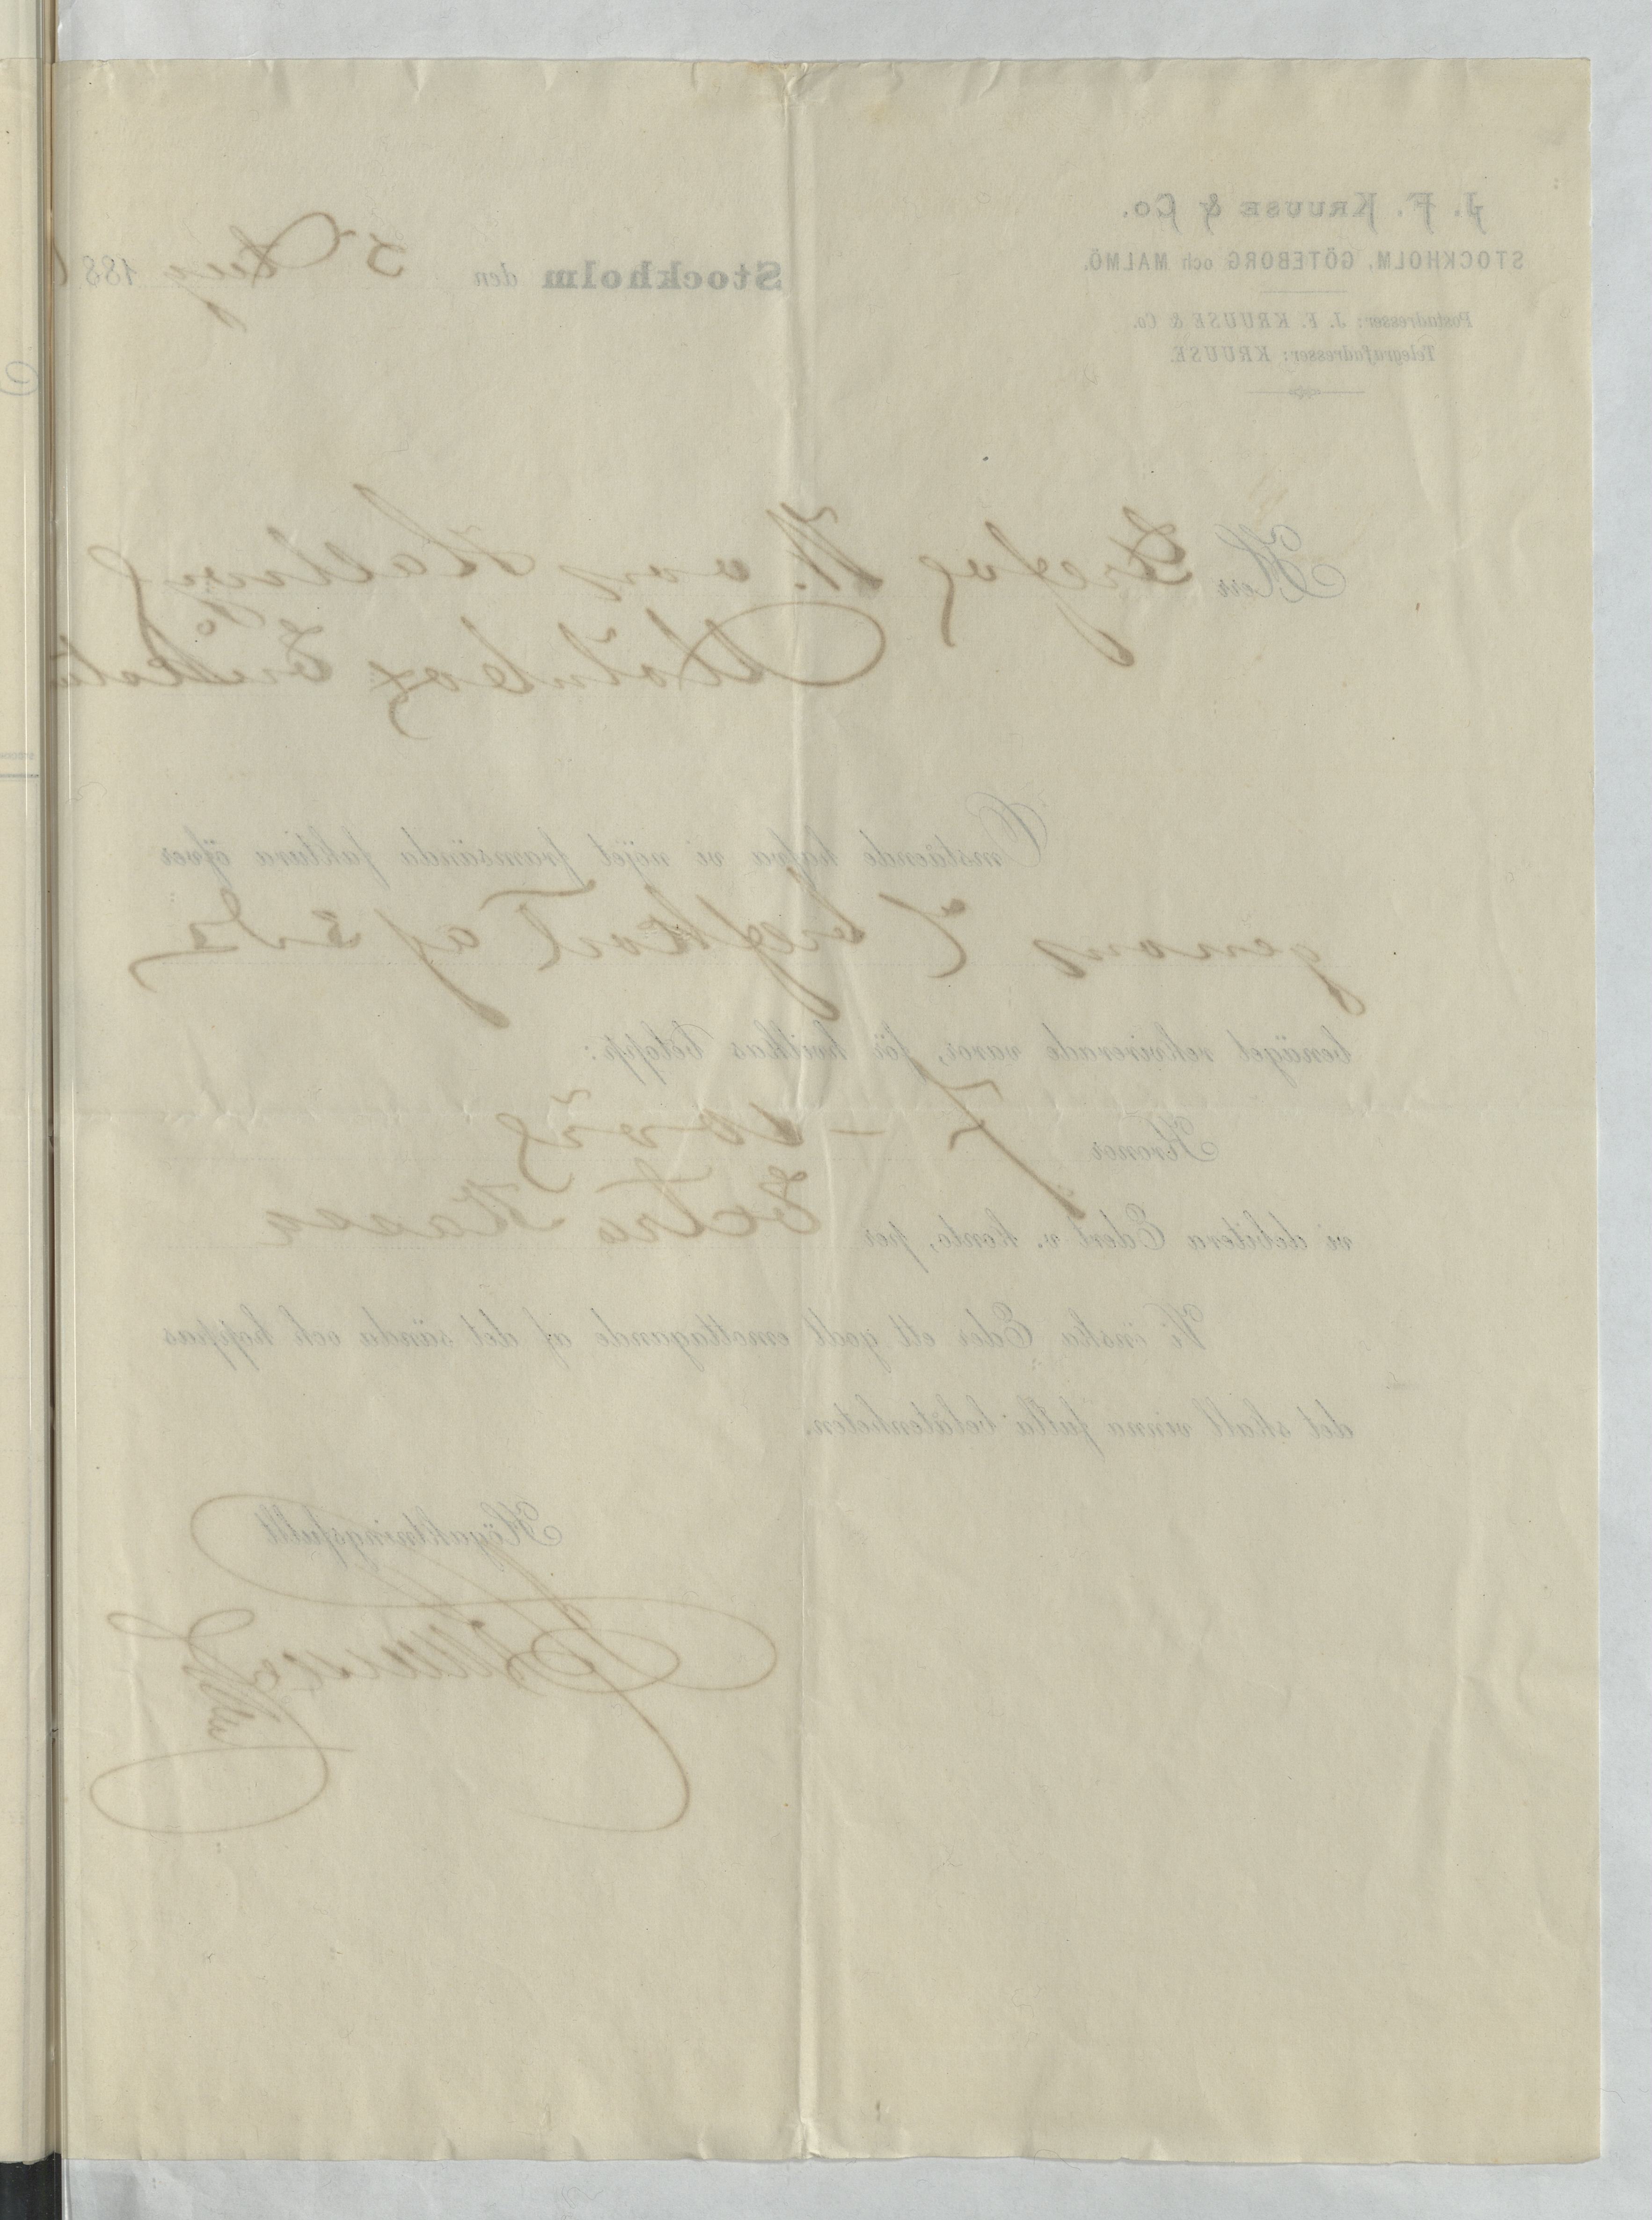 J. F. KRUUSE & Co.
STOCKHOLM, GÖTEBORG och MALMÖ.
Postadresser: J. F. KRUUSE & Co.
Telegrafadresser: KRUUSE.
Stockholm den 5 Aug 188
Herr Grefve W. von Hallwyl
Omstående hafva vi nöjet framsända faktura öfver
genom bref kort af
benäget rekvirerade varor, för hvilkas belopp:
Kronor 7 —
vi debitera Edert v. konto, per Extra Kassa
Vi önska Eder ett godt emottagande af det sända och hoppas
det skall vinna fulla belåtenheten.
Högaktningsfullt
Kruuse